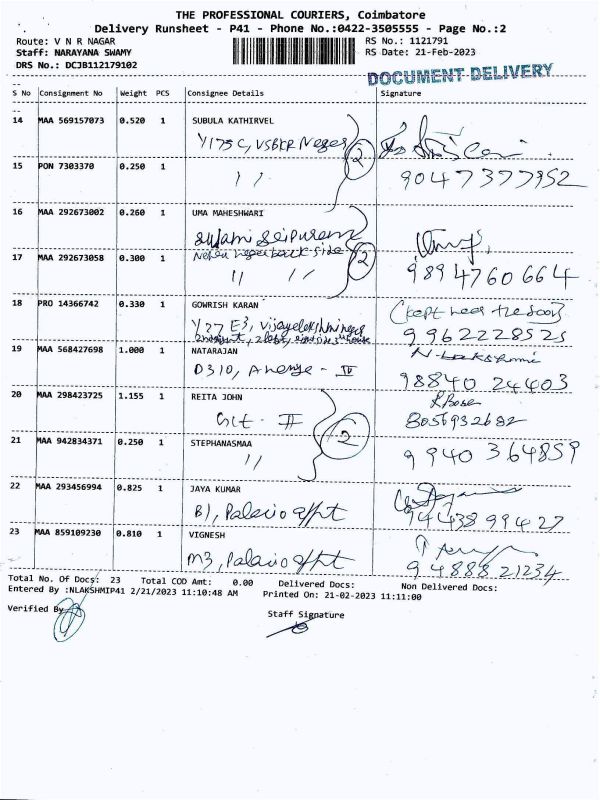 THE PROFESSIONAL COURIERS, Coimbatore
Delivery Runsheet - P41 - Phone No.:0422-3505555 - Page No.:2
Route: V N R NAGAR RS No.: 1121791
Staff: NARAYANA SWAMY RS Date: 21-Feb-2023
DRS No.: DCJB112179102
DOCUMENT DELIVERY
S No Consignment No Weight PCS Consignee Details Signature
14 MAA 569157073 0.520 1 SUBULA KATHIRVEL
Y175C,
2
15 PON 7303370 0.250 1
" 9047377952
16 MAA 292673002 0.260 1 UMA MAHESHWARI
17 MAA 292673058 0.300 1 back side 2
" " 9894760664
18 PRO 14366742 0.330 1 GOWRISH KARAN (kept near the door)
Y27 E3, 9962228525
19 MAA 568427698 1.000 1 NATARAJAN
D310, - IV 98840 24403
20 MAA 298423725 1.155 1 REITA JOHN R. Bose
- II 2 8056932682
21 MAA 942834371 0.250 1 STEPHANASMAA
" 9940 364859
22 MAA 293456994 0.825 1 JAYA KUMAR
B1, Palacio 9443899427
23 MAA 859109230 0.810 1 VIGNESH
M3, Palacio 9488821234
Total No. Of Docs: 23 Total COD Amt: 0.00 Delivered Docs: Non Delivered Docs:
Entered By :NLAKSHMIP41 2/21/2023 11:10:48 AM Printed On: 21-02-2023 11:11:00
Verified By
Staff Signature